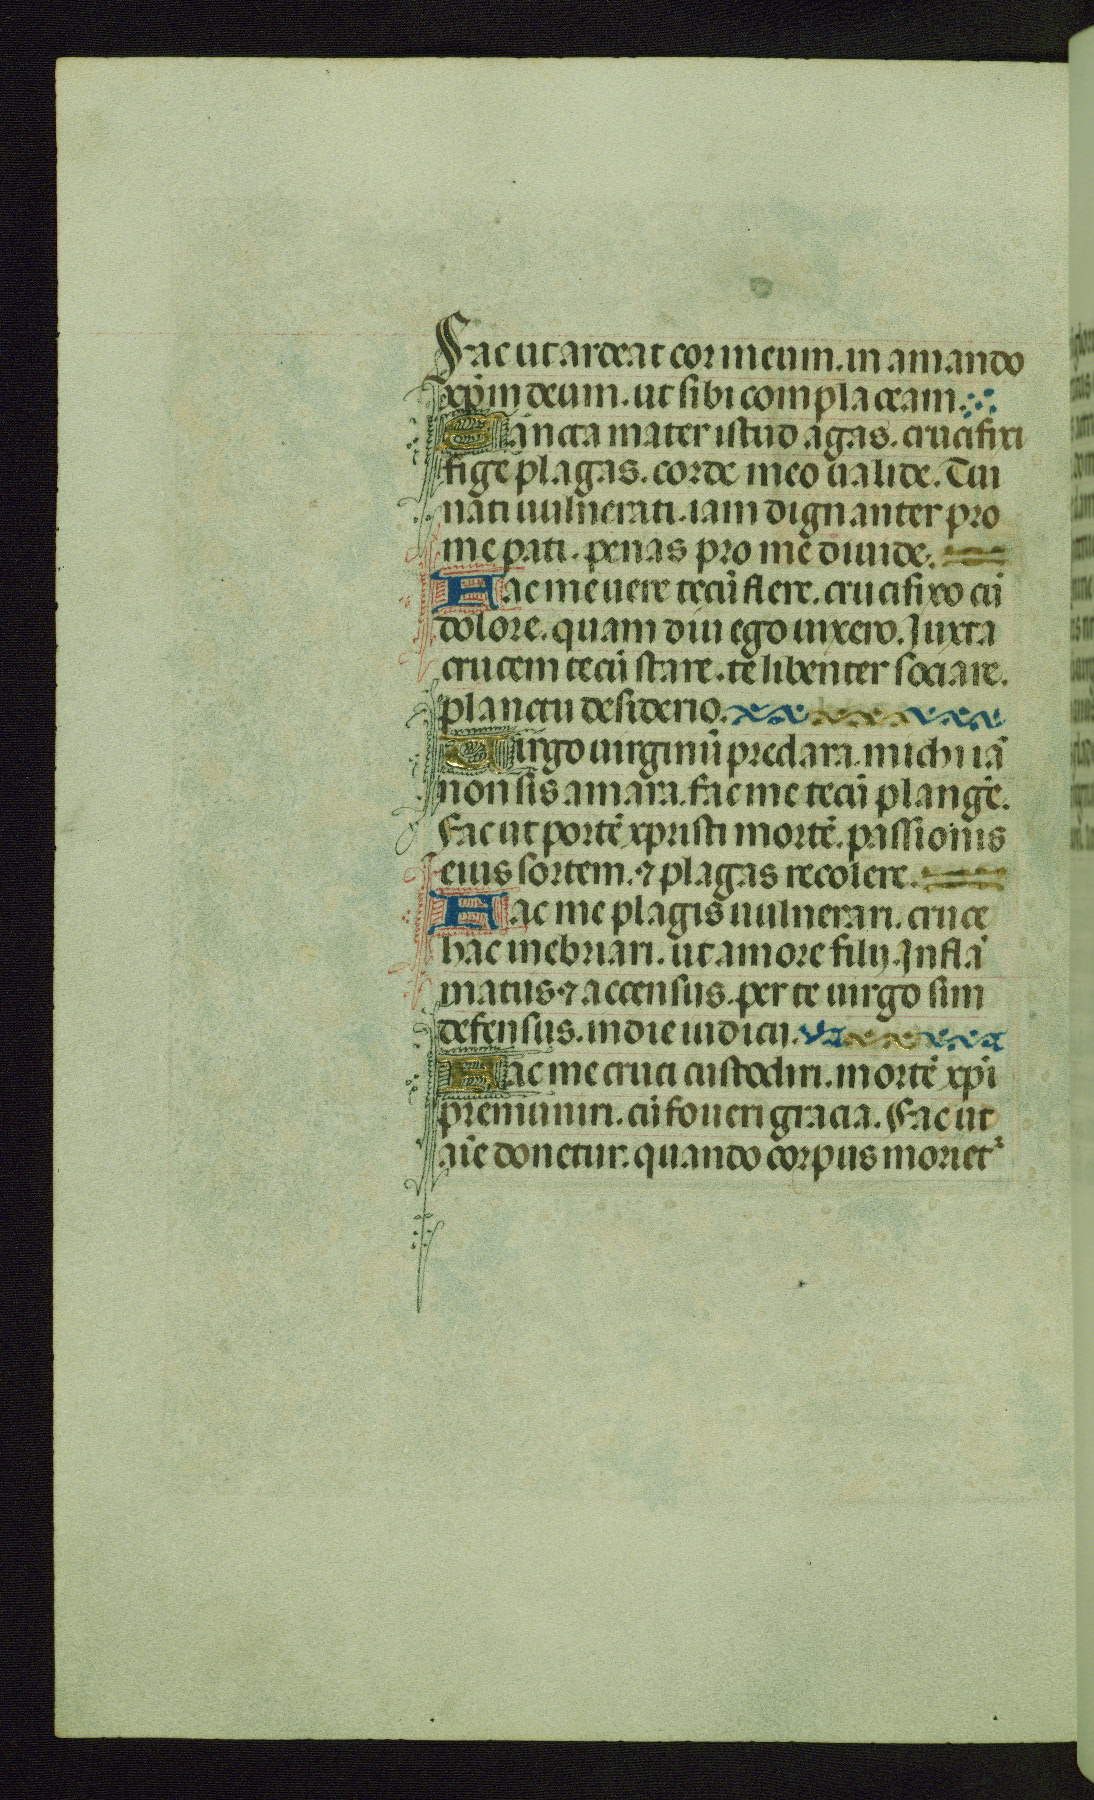 Fac ut ardeat cor meum. in amando
xp̄m deum. ut sibi complaceam.
Sancta mater istud agas. crucifixi
fige plagas. corde meo ualide. Tui
nati uulnerati. iam dignanter pro
me pati. penas pro me diuide.
Fac me uere tecū flere. crucifixo cū
dolore. quam diu ego uixero. Juxta
crucem tecū stare. te libenter sociare.
planctu desiderio.
Uirgo uirginū preclara. michi iā
non sis amara. fac me tecū plangē.
Fac ut portē xpristi mortē. passionis
eius sortem. ⁊ plagas recolere.
Fac me plagis uulnerari. cruce
hac inebriari. ut amore filij. Inflā
matus ⁊ accensus. per te uirgo sim
defensus. in die iudicij.
Fac me cruci custodiri. mortē xp̄i
premuniri. cū foueri gracia. Fac ut
aīe donetur. quando corpus moriet᷑